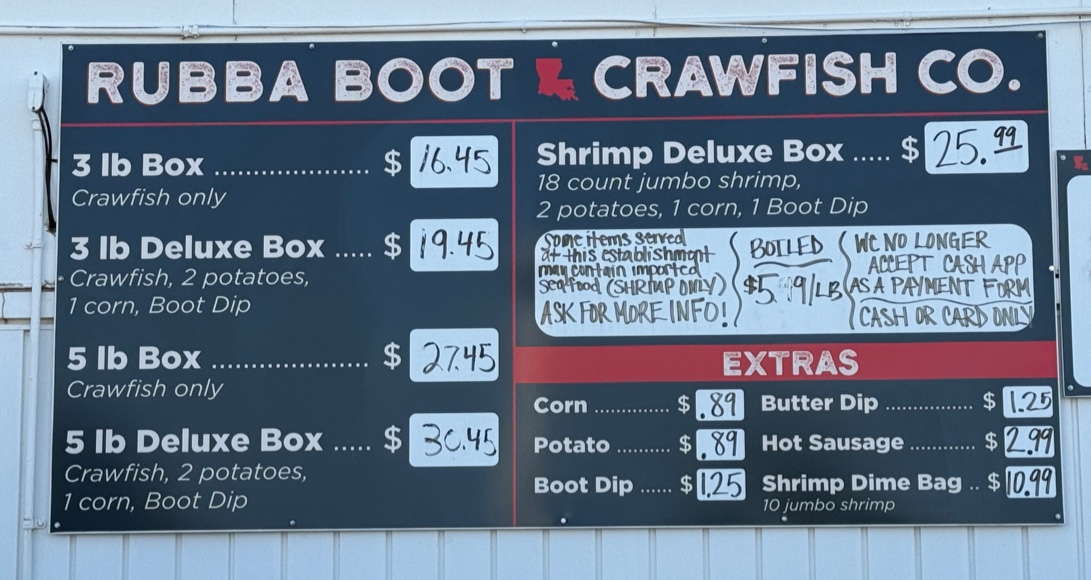 RUBBA BOOT CRAWFISH CO.
3 lb Box .................... $ 16.45
Crawfish only
3 lb Deluxe Box ..... $ 19.45
Crawfish, 2 potatoes,
1 corn, Boot Dip
5 lb Box .................... $ 27.45
Crawfish only
5 lb Deluxe Box ..... $ 30.45
Crawfish, 2 potatoes,
1 corn, Boot Dip
Shrimp Deluxe Box ..... $ 25.99
18 count jumbo shrimp,
2 potatoes, 1 corn, 1 Boot Dip
Some items served
at this establishment
may contain imported
seafood (SHRIMP ONLY)
ASK FOR MORE INFO!
BOILED
/LB
WE NO LONGER
ACCEPT CASH APP
AS A PAYMENT FORM
CASH OR CARD ONLY
EXTRAS
Corn ............. $ .89
Potato ......... $ .89
Boot Dip ...... $ 1.25
Butter Dip ................ $ 1.25
Hot Sausage ............ $ 2.99
Shrimp Dime Bag .. $ 10.99
10 jumbo shrimp